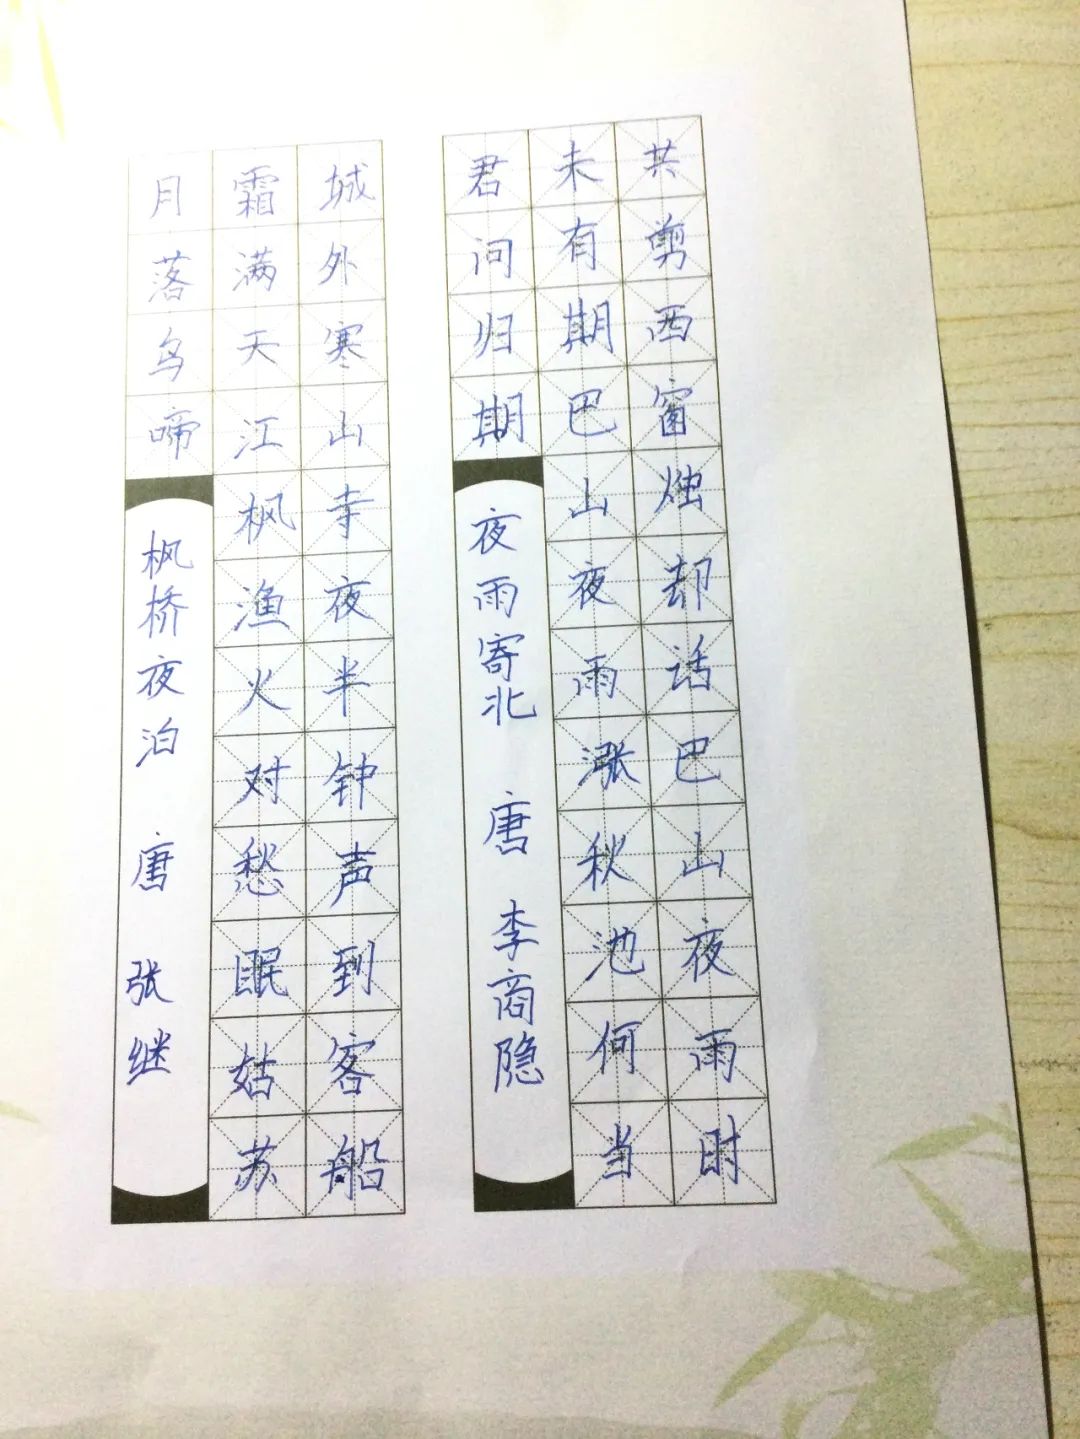 月落乌啼
枫桥夜泊 唐 张继
霜满天江枫渔火对愁眠姑苏
城外寒山寺夜半钟声到客船
君问归期
夜雨寄北 唐 李商隐
未有期巴山夜雨涨秋池何当
共剪西窗烛却话巴山夜雨时